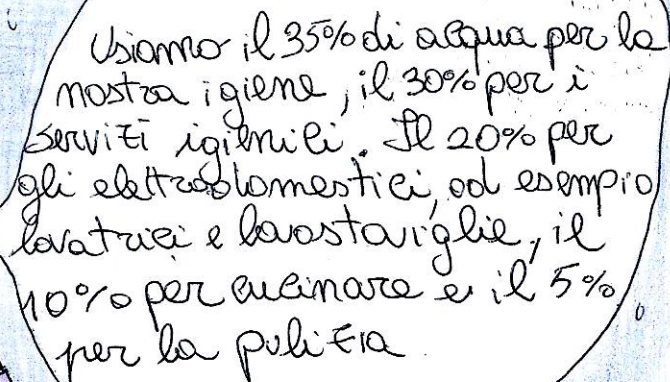 Usiamo il 35% di acqua per la
nostra igiene, il 30% per i
servizi igienici. Il 20% per
gli elettrodomestici, ad esempio
lavatrici e lavastoviglie, il
10% per cucinare e il 5%
per la pulizia